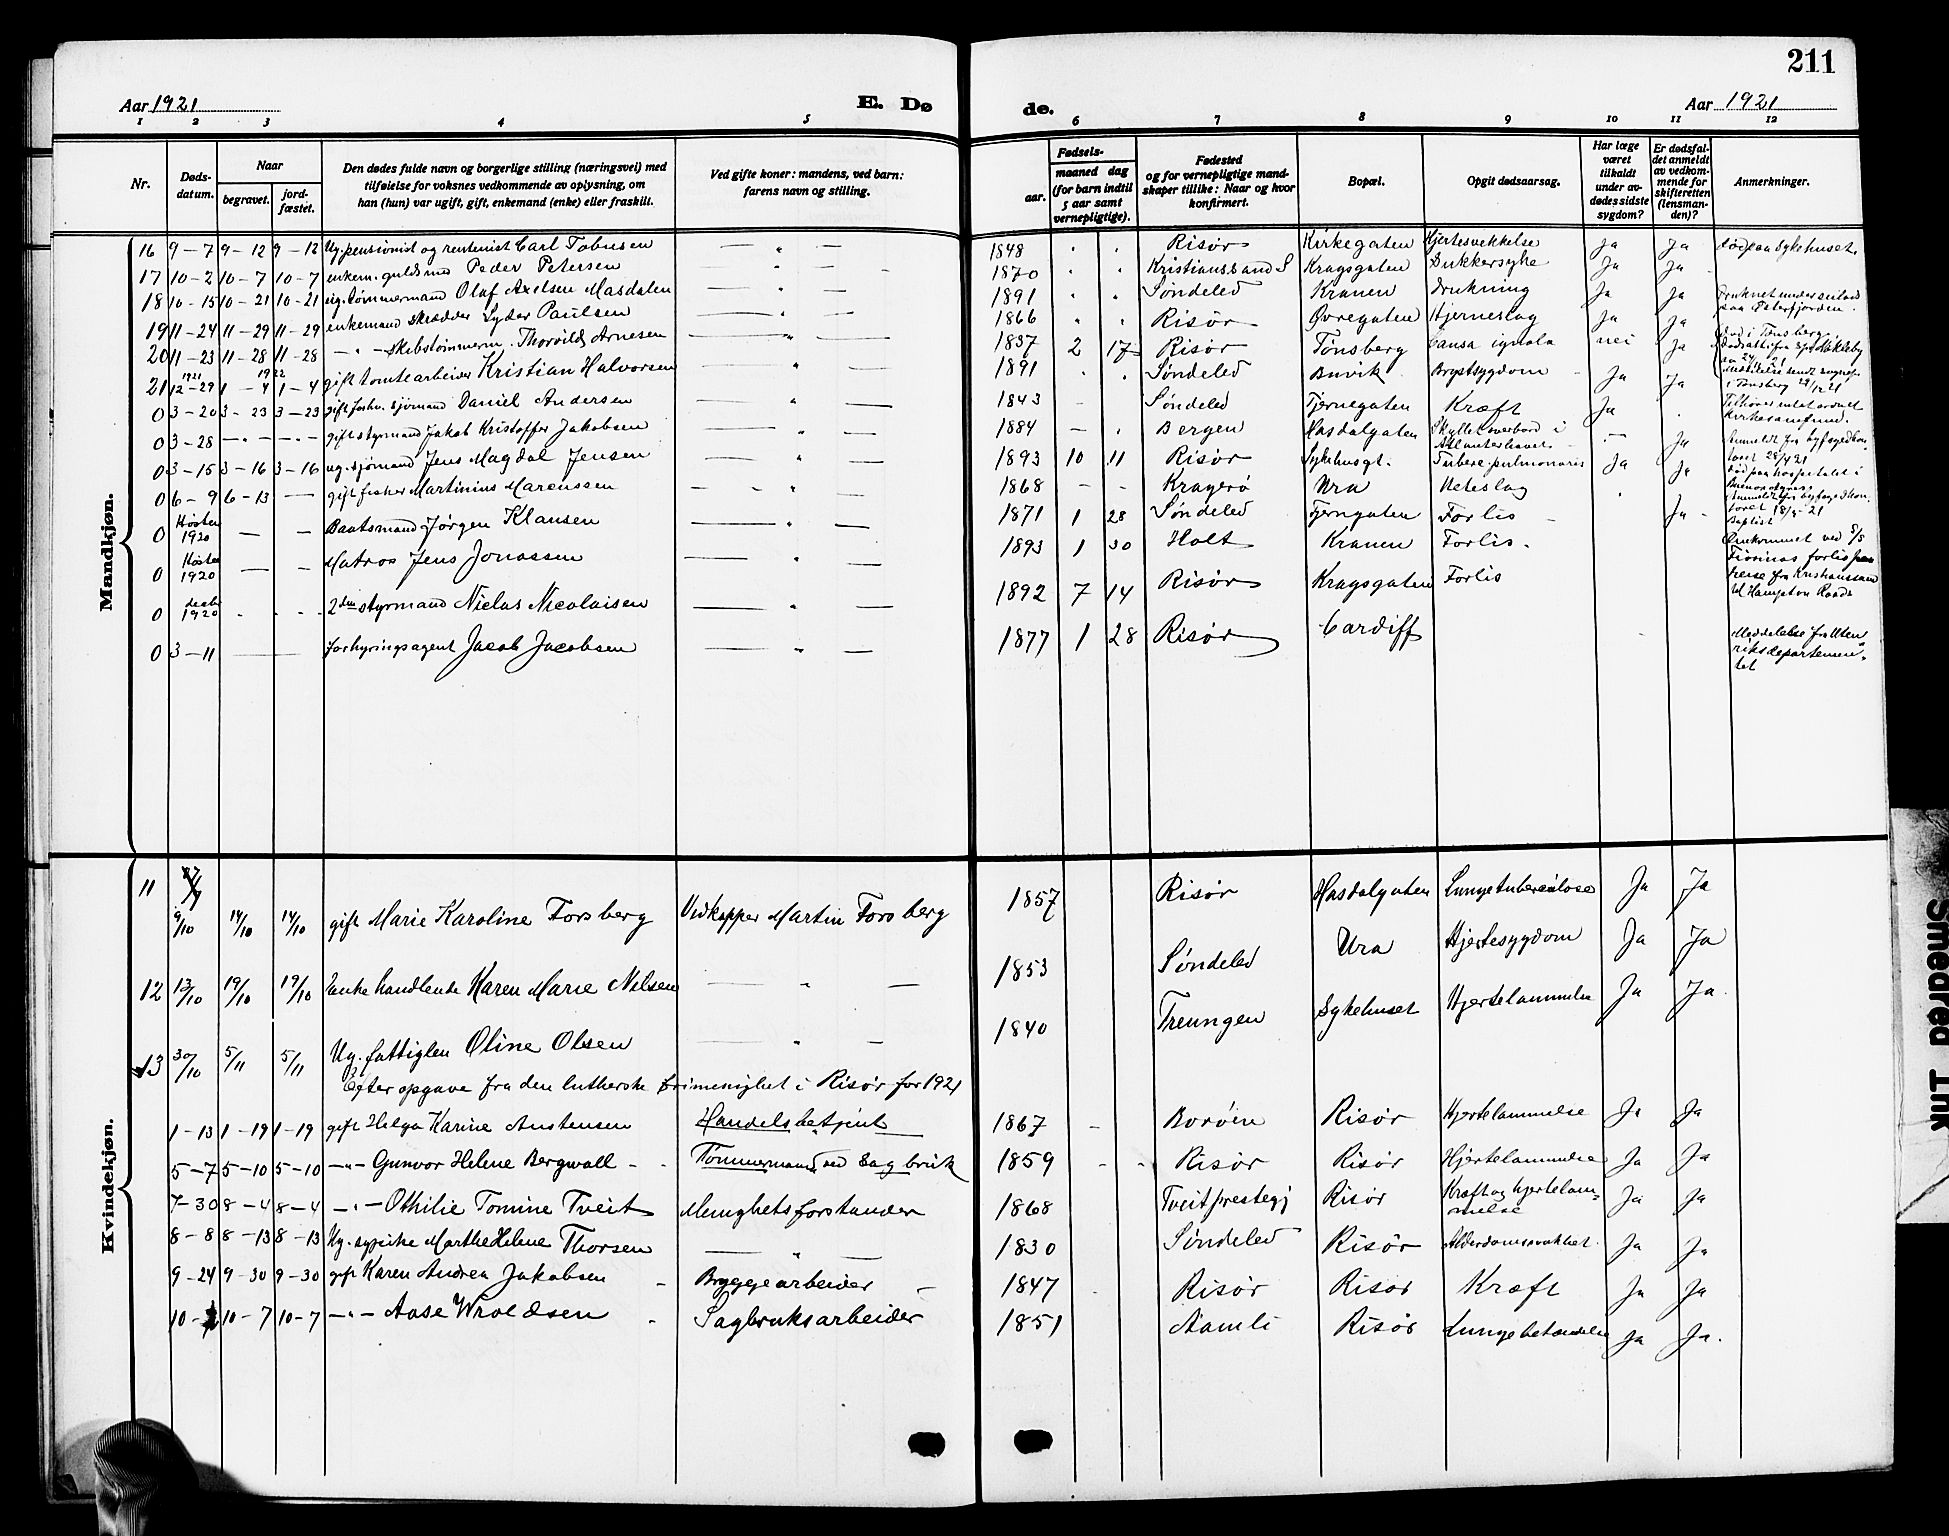 211
Aar 1921 E. Dø de. Aar 1921
1 2 3 4 5 6 7 8 9 10 11 12
Nr. Døds-datum. Naar begravet. jord-fæstet. Den dødes fulde navn og borgerlige stilling (næringsvei) med tilføielse for voksnes vedkommende av oplysning, om han (hun) var ugift, gift, enkemand (enke) eller fraskilt. Ved gifte koner: mandens, ved barn: farens navn og stilling. Fødsels- aar. maaned dag (for barn indtil 5 aar samt vernepligtige). Fødested og for vernepligtige mandskaper tillike: Naar og hvor konfirmert. Bopæl. Opgit dødsaarsag. Har læge været tilkaldt under avdødes sidste sygdom? Er dødsfaldet anmeldt av vedkommende for skifteretten (lensmanden)? Anmerkninger.
Mandkjøn.
16 9-7 9-12 9-12 Ug. pensionist og rentenist Carl Tobiesen — " — 1848 " " Risør Kirkegaten Hjertesvekkelse Ja Ja Død paa Sykehuset.
17 10-2 10-7 10-7 enkem. guldsmed Peder Petersen — " — 1870 " " Kristianssand S Kragsgaten Sukkersyke Ja Ja
18 10-15 10-21 10-21 ug. tømmermand Olaf Axelsen Masdalen — " — 1891 " " Søndeled Kranen Drukning Ja Ja Druknet under seilads paa Østerfjorden.
19 11-24 11-29 11-29 enkemand Skrædder Paulsen — " — 1866 " " Risør Øvregaten Hjerneslag Ja Ja
20 11-23 11-28 11-28 — " — Skibstømmerm. Thorvild Arnesen — " — 1837 2 17 Risør Tønsberg Causa ignota nei Ja Død i Tønsberg.
21 1921 12-29 1922 1-4 1-4 gift tomtearbeider Kristian Halvorsen " 1891 " " Søndeled Buvik Brystsygdom Ja Ja i Tønsberg
0 3-20 3-23 3-23 gift forhv. sjømand Daniel Andersen — " — 1843 — Søndeled Tjernegaten Kræft Ja
0 3-28 — " — — " — gift styrmand Jakob Kristoffer Jakobsen — " — 1884 — " Bergen Hasdalgaten Skyllet overbord i Atlanterhavet. — Ja
0 3-15 3-16 3-16 ug. sjømand Jens Magdal Jensen — " — 1893 10 11 Risør Sykehusgt. Tuberc. pulmonaris Ja Ja Død paa hospitalet i Buenos Ayres
0 6-9 6-13 — gift fisker Martinius Marenssen — " — 1868 — — Kragerø Ura Heteslag
0 Høsten 1920 — — Baatsmand Jørgen Klausen — " — 1871 1 28 Søndeled Tjerngaten Forlis — Ja Baptist
0 Høsten 1920 — — Matros Jens Jonassen — " — 1893 1 30 Holt Kranen Forlis. Omkommet ved S/S
0 decbr 1920 2den styrmand Niclas Nicolaisen — " — 1892 7 14 Risør Kragsgaten Forlis reise fra Kristianssand til Hampton Roads
0 3-11 — forhyringsagent Jacob Jacobsen — " — 1877 1 28 Risør Cardiff Meddelelse fra Uten-riksdepartemen-tet
Kvindekjøn.
11 9/10 14/10 14/10 gift Marie Karoline Forsberg Vedkapper Martin Forsberg 1857 Risør Hasdalgaten Lungetuberculose Ja Ja
12 13/10 19/10 19/10 enke handlende Karen Marie Nilsen — " — 1853 Søndeled Ura Hjertesygdom Ja Ja
13 30/10 5/11 5/11 Ug. fattiglem Oline Olsen — " — 1840 Treungen Sykehuset Hjertelammelse Ja Ja.
Efter opgave fra den lutherske frimenighet i Risør for 1921
1-13 1-19 1-19 gift Helga Karine Austensen Handelsbetjent 1867 — Borøen Risør Hjertelammelse Ja Ja
5-7 5-10 5-10 — " — Gunvor Helene Bergwall Tømmermand ved Sagbruk 1859 Risør Risør Hjertelammelse Ja Ja
7-30 8-4 8-4 — " — Othilie Tomine Tveit Menighetsforstander 1868 Tveit prestegj Risør Kræft og hjertelam-melse Ja Ja
8-8 8-13 8-13 Ug. sypike Marthe Helene Thorsen — " — 1830 Søndeled Risør Alderdomssvakhet Ja Ja
9-24 9-30 9-30 gift Karen Andrea Jakobsen Bryggearbeider 1847 Risør Risør Kræft Ja Ja
10-2 10-7 10-7 — " — Aase Wroldsen Sagbruksarbeider 1851 Aamli Risør Lungebetændelse Ja Ja.
Smeared Ink